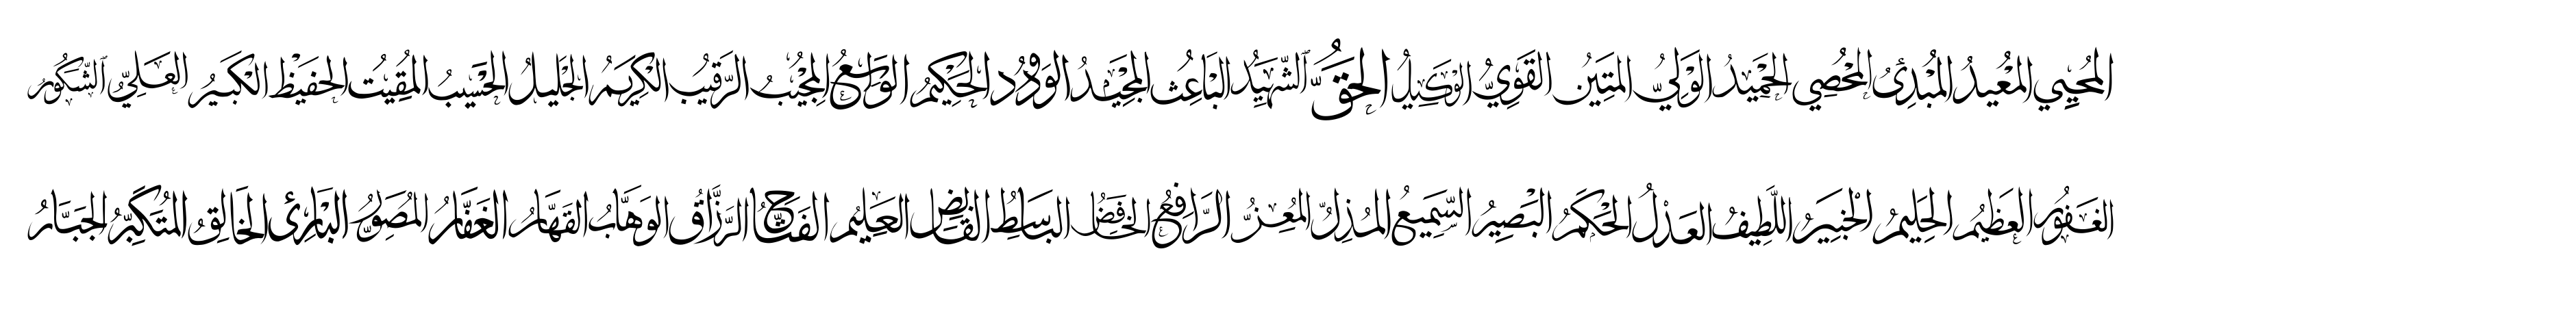 المُحْيِي المُعِيدُ المُبْدِئُ المُحْصِي الحَمِيدُ الوَلِيُّ المَتِينُ القَوِيُّ الوَكِيلُ الحَقُّ الشَّهِيدُ البَاعِثُ المَجِيدُ الوَدُودُ الحَكِيمُ الوَاسِعُ المُجِيبُ الرَّقِيبُ الكَرِيمُ الجَلِيلُ الحَسِيبُ المُقِيتُ الحَفِيظُ الكَبِيرُ العَلِيُّ الشَّكُورُ
الغَفُورُ العَظِيمُ الحَلِيمُ الخَبِيرُ اللَّطِيفُ العَدْلُ الحَكَمُ البَصِيرُ السَّمِيعُ المُذِلُّ المُعِزُّ الرَّافِعُ الخَافِضُ البَاسِطُ القَابِضُ العَلِيمُ الفَتَّاحُ الرَّزَّاقُ الوَهَّابُ القَهَّارُ الغَفَّارُ المُصَوِّرُ البَارِئُ الخَالِقُ المُتَكَبِّرُ الجَبَّارُ